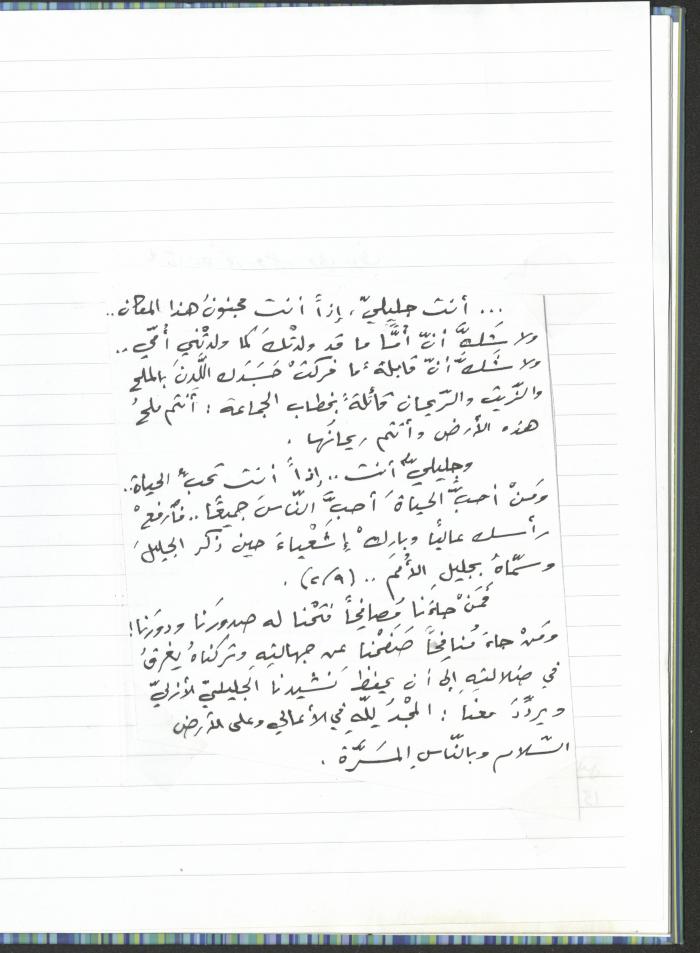 ... أنت جليليّ، إذاً أنت مجنونُ هذا المكان..
ولا شَكَّ أنّ أُمَّاً ما قد ولدتْكَ كما ولدتْني أُمّي ..
ولا شَكَّ أنّ قابلةً ما فركتْ جَسَدَك اللَّدِنَ بالملح
والزّيت والرّيحان قائلةً بخطاب الجماعة : أنتم ملحُ
هذه الأرض وأنتم ريحانُها .
وجليليٌّ أنت .. إذاً أنت تحبُّ الحياة..
ومَنْ أحبَّ الحياةَ أحبَّ النّاسَ جميعًا .. فٱرفعْ
رأسك عاليًا وباركْ إِشَعْياءَ حين ذكر الجليلَ
وسمّاهُ بجليلِ الأُمَمِ .. (٢/٩) .
فَمَنْ جاءَنا مُصافِحًا فتحْنا له صدورَنا ودورَنا!
ومَنْ جاءَ مُنافِحًا صَفَحْنا عن جهالتِهِ وتركناهُ يغرقُ
في ضلالتِهِ إلى أن يحفظَ نشيدنا الجليليّ الأزليّ
ويردِّدَ معنا : المجْدُ للّهِ في الأعالي وعلى الأرض
السّلام وبالنّاسِ المَسَرَّة .